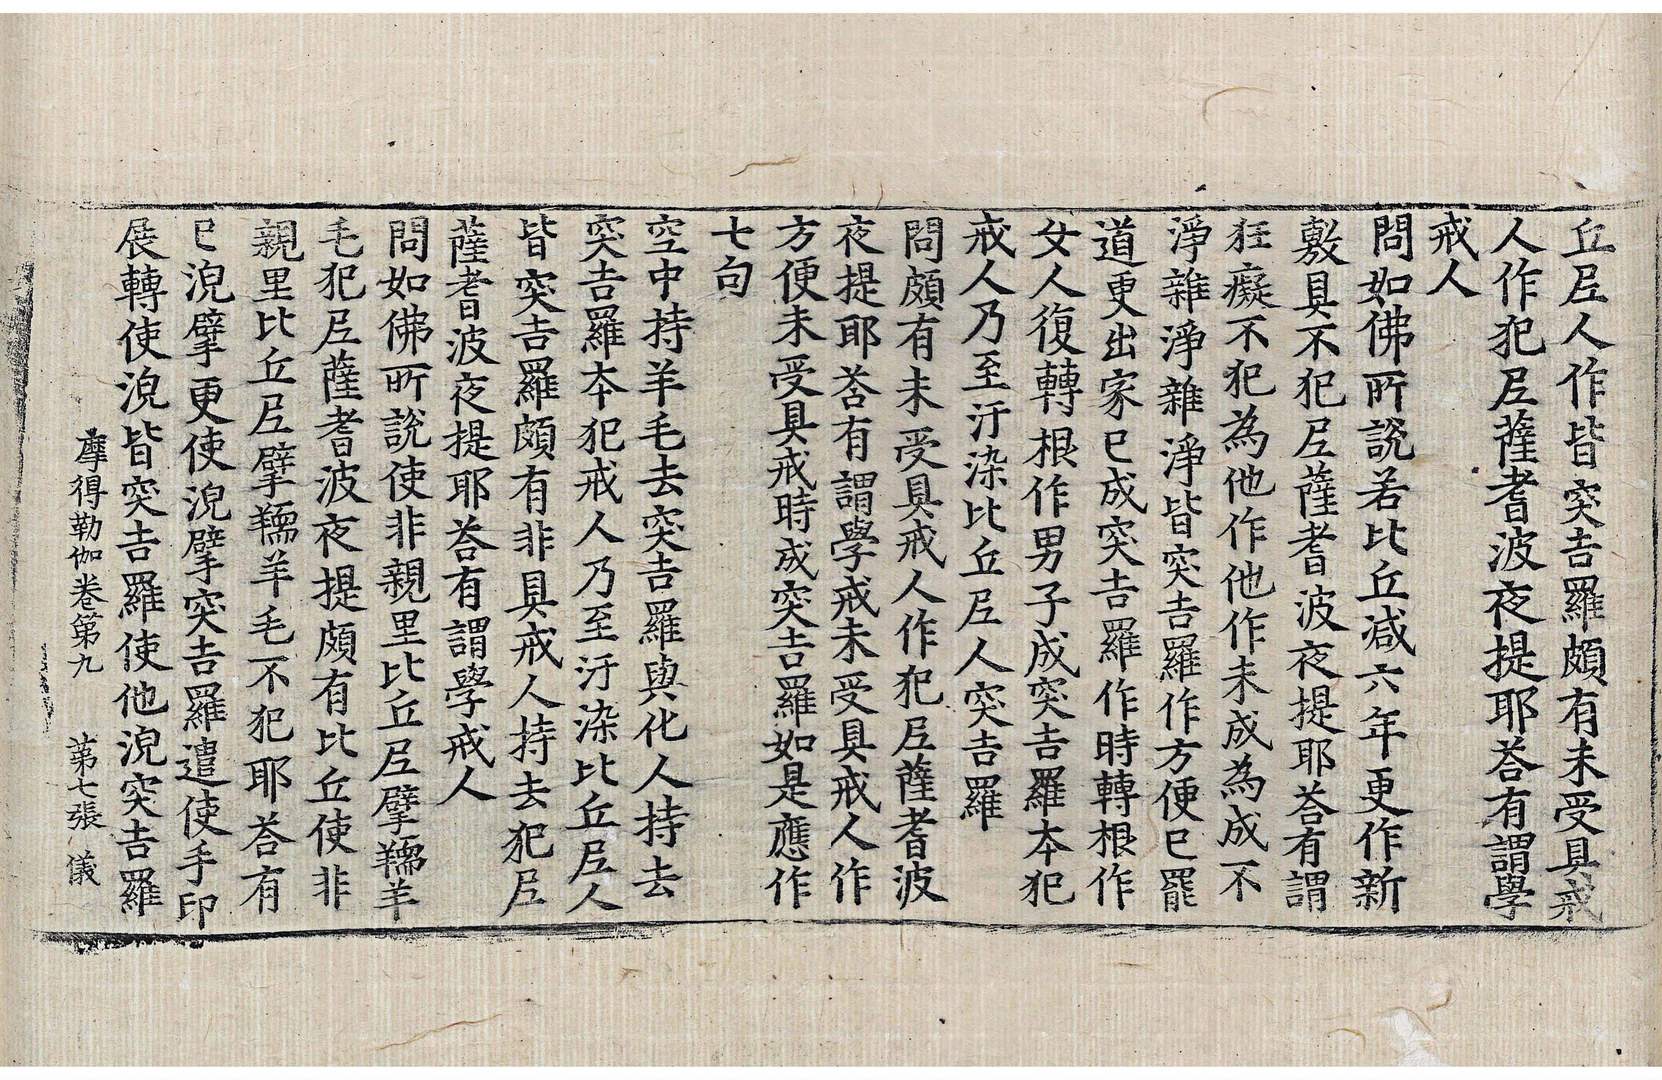 丘尼人作皆突吉羅頗有未受具戒
人作犯尼薩耆波夜提耶荅有謂學
戒人
問如佛所說若比丘减六年更作新
敷具不犯尼薩耆波夜提耶荅有謂
狂癡不犯為他作他作未成為成不
淨雜淨雜淨皆突吉羅作方便已罷
道更出家已成突吉羅作時轉根作
女人復轉根作男子成突吉羅本犯
戒人乃至汙染比丘尼人突吉羅
問頗有未受具戒人作犯尼薩耆波
夜提耶荅有謂學戒未受具戒人作
方便未受具戒時成突吉羅如是應作
七句
空中持羊毛去突吉羅與化人持去
突吉羅本犯戒人乃至汙染比丘尼人
皆突吉羅頗有非具戒人持去犯尼
薩耆波夜提耶荅有謂學戒人
問如佛所說使非親里比丘尼擘羺羊
毛犯尼薩耆波夜提頗有比丘使非
親里比丘尼擘羺羊毛不犯耶荅有
已浣擘更使浣擘突吉羅遣使手印
展轉使浣皆突吉羅使他浣突吉羅
摩得勒伽卷第九 第七張 儀